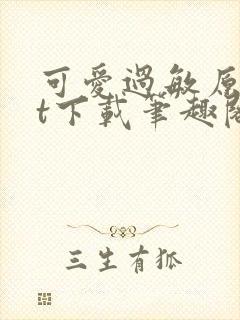 可愛過敏原
t下載筆趣閣
三生有狐